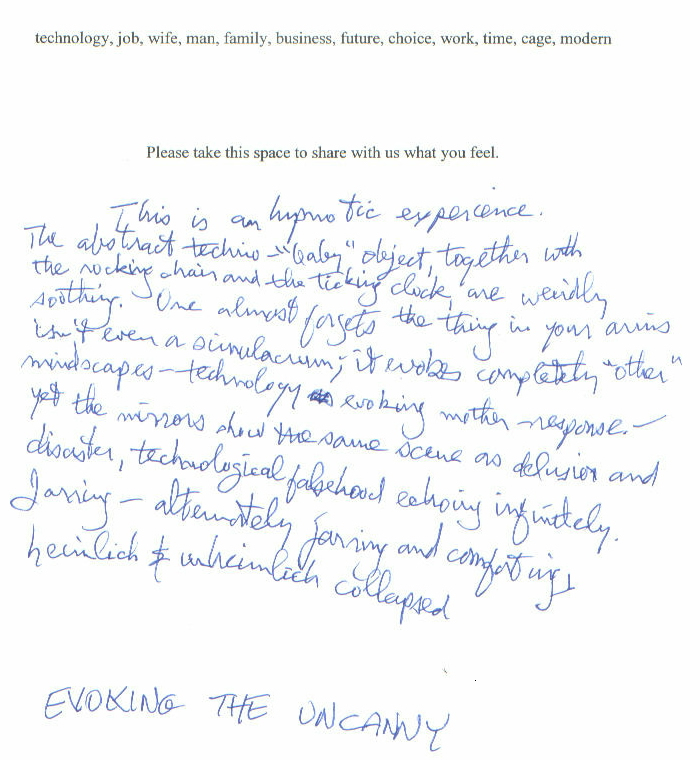 technology, job, wife, man, family, business, future, choice, work, time, cage, modern
Please take this space to share with us what you feel.
This is an hypnotic experience.
The abstract techno-"baby" object, together with
the rocking chair and the ticking clock, are weirdly
soothing. One almost forgets the thing in your arms
isn't even a simulacrum; it evokes completely "other"
mindscapes - technology evoking mother-response. -
yet the mirrors show the same scene as delusion and
disaster, technological falsehood echoing infinitely.
Jarring - alternately jarring and comforting,
heimlich & unheimlich collapsed
EVOKING THE UNCANNY